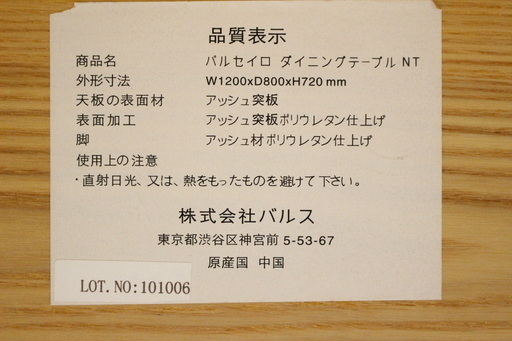 品質表示
商品名 バルセイロ ダイニングテーブル NT
外形寸法 W1200xD800xH720 mm
天板の表面材 アッシュ突板
表面加工 アッシュ突板ポリウレタン仕上げ
脚 アッシュ材ポリウレタン仕上げ
使用上の注意
・直射日光、又は、熱をもったものを避けて下さい。
株式会社バルス
東京都渋谷区神宮前 5-53-67
原産国 中国
LOT.NO:101006